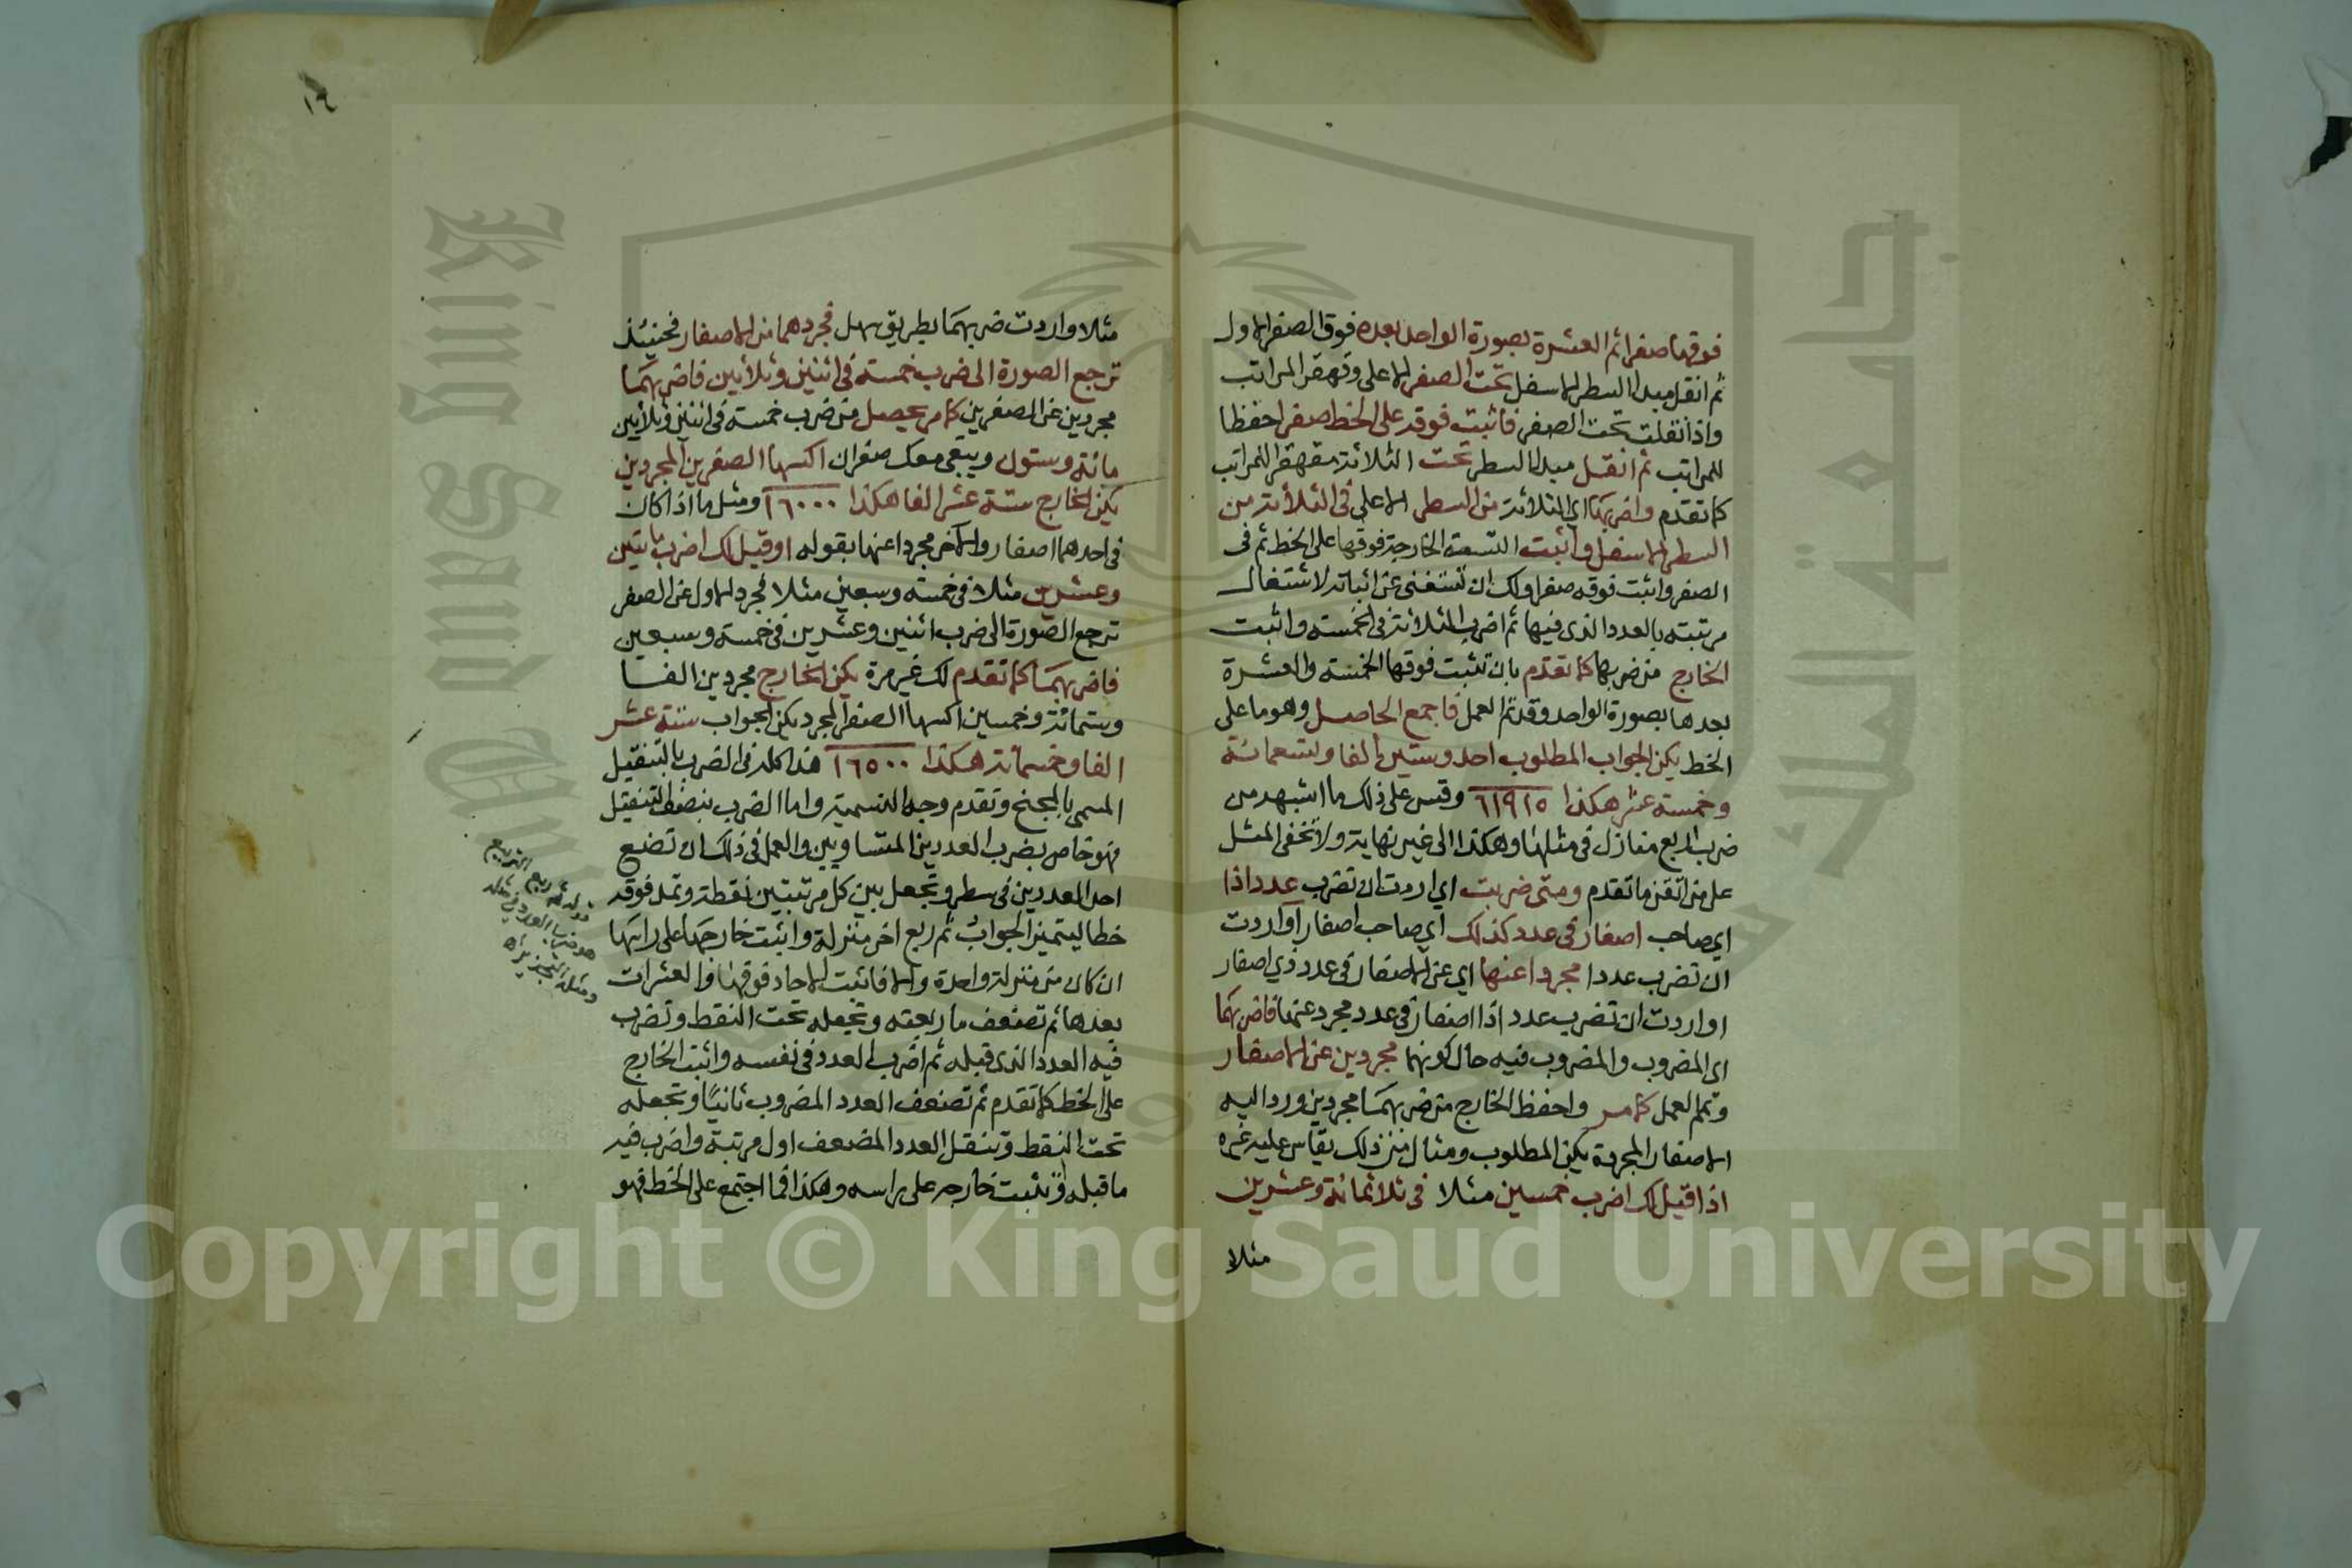 فوقها صفرا ثم العشرة بصورة الواحد بعده فوق الصفر الاول
ثم انقل مبدا السطر الاسفل تحت الصفر الاعلى وقهقر المراتب
واذا نقلت تحت الصفر فاثبت فوقه على الخط صفرا حفظا
للمراتب ثم انقل مبدا السطر تحت الثلاثة مقهقرا للمراتب
كما تقدم واضربها اي الثلاثة من السطر الاعلى في الثلاثة من
السطر الاسفل واثبت التسعة الخارجة فوقها على الخط ثم في
الصفر واثبت فوقه صفرا ولك ان تستغني عن اثباته لاشتغال
مرتبته بالعدد الذي فيها ثم اضرب الثلاثة في الخمسة واثبت
الخارج من ضربها كما تقدم بان تثبت فوقها الخمسة والعشرة
بعدها بصورة الواحد وقد تم العمل فاجمع الحاصل وهو ما على
الخط يكن الجواب المطلوب احد وستين الفا وتسعمائة
وخمسة عشر هكذا ٦١٩١٥ وقس على ذلك ما اشبهه من
ضرب اربع منازل في مثلها وهكذا الى غير نهاية ولا تخفى المثل
على من اتقن ما تقدم ومتى ضربت اي اردت ان تضرب عددا ذا
اي صاحب اصفار في عدد كذلك اي صاحب اصفار او اردت
ان تضرب عددا مجردا عنها اي عن الاصفار في عدد ذي اصفار
او اردت ان تضرب عددا ذا اصفار في عدد مجرد عنها فاضربهما
اي المضروب والمضروب فيه حال كونهما مجردين عن الاصفار
وتمم العمل كما مر واحفظ الخارج من ضربهما مجردين ورد اليه
الاصفار المجردة يكن المطلوب ومثال من ذلك يقاس عليه غيره
اذا قيل لك اضرب خمسين مثلا في ثلاثمائة وعشرين
مثلا
١٢
مثلا واردت ضربهما بطريق سهل فجردهما من الاصفار فحينئذ
ترجع الصورة الى ضرب خمسة في اثنين وثلاثين فاضربهما
مجردين عن الصفرين كما مر يحصل من ضرب خمسة في اثنين وثلاثين
مائة وستون ويبقى معك صفران اكسها الصفرين المجردين
يكن الخارج ستة عشر الفا هكذا ١٦٠٠٠ ومثلها اذا كان
في احدهما اصفار والاخر مجردا عنها بقوله او قيل لك اضرب مايتين
وعشرين مثلا في خمسة وسبعين مثلا فجرد الاول عن الصفر
ترجع الصورة الى ضرب اثنين وعشرين في خمسة وسبعين
فاضربهما كما تقدم لك غير مرة يكن الخارج مجردين الفا
وستمائة وخمسين اكسها الصفر المجرد يكن الجواب ستة عشر
الفا وخمسمائة هكذا ١٦٥٠٠ هذا كله في الضرب بالتنقيل
المسمى بالمجنح وتقدم وجه التسمية واما الضرب بنصف التنقيل
فهو خاص بضرب العددين المتساويين والعمل في ذلك ان تضع
احد العددين في سطر وتجعل بين كل مرتبتين نقطة وتمد فوقه
خطا ليتميز الجواب ثم ربع اخر منزلة واثبت خارجها على راسها
ان كان من منزلة واحدة والا فاثبت الاحاد فوقها والعشرات
بعدها ثم تضعف ما ربعته وتجعله تحت النقط وتضرب
فيه العدد الذي قبله ثم اضرب العدد في نفسه واثبت الخارج
على الخط كما تقدم ثم تضعف العدد المضروب ثانيا وتجعله
تحت النقط وتنقل العدد المضعف اول مرتبة واضرب فيه
ما قبله وتثبت خارجه على راسه وهكذا فما اجتمع على الخط فهو
قوله ثم ربع التربيع
هو ضرب العدد في مثله
Copyright © King Saud University
King Saud University